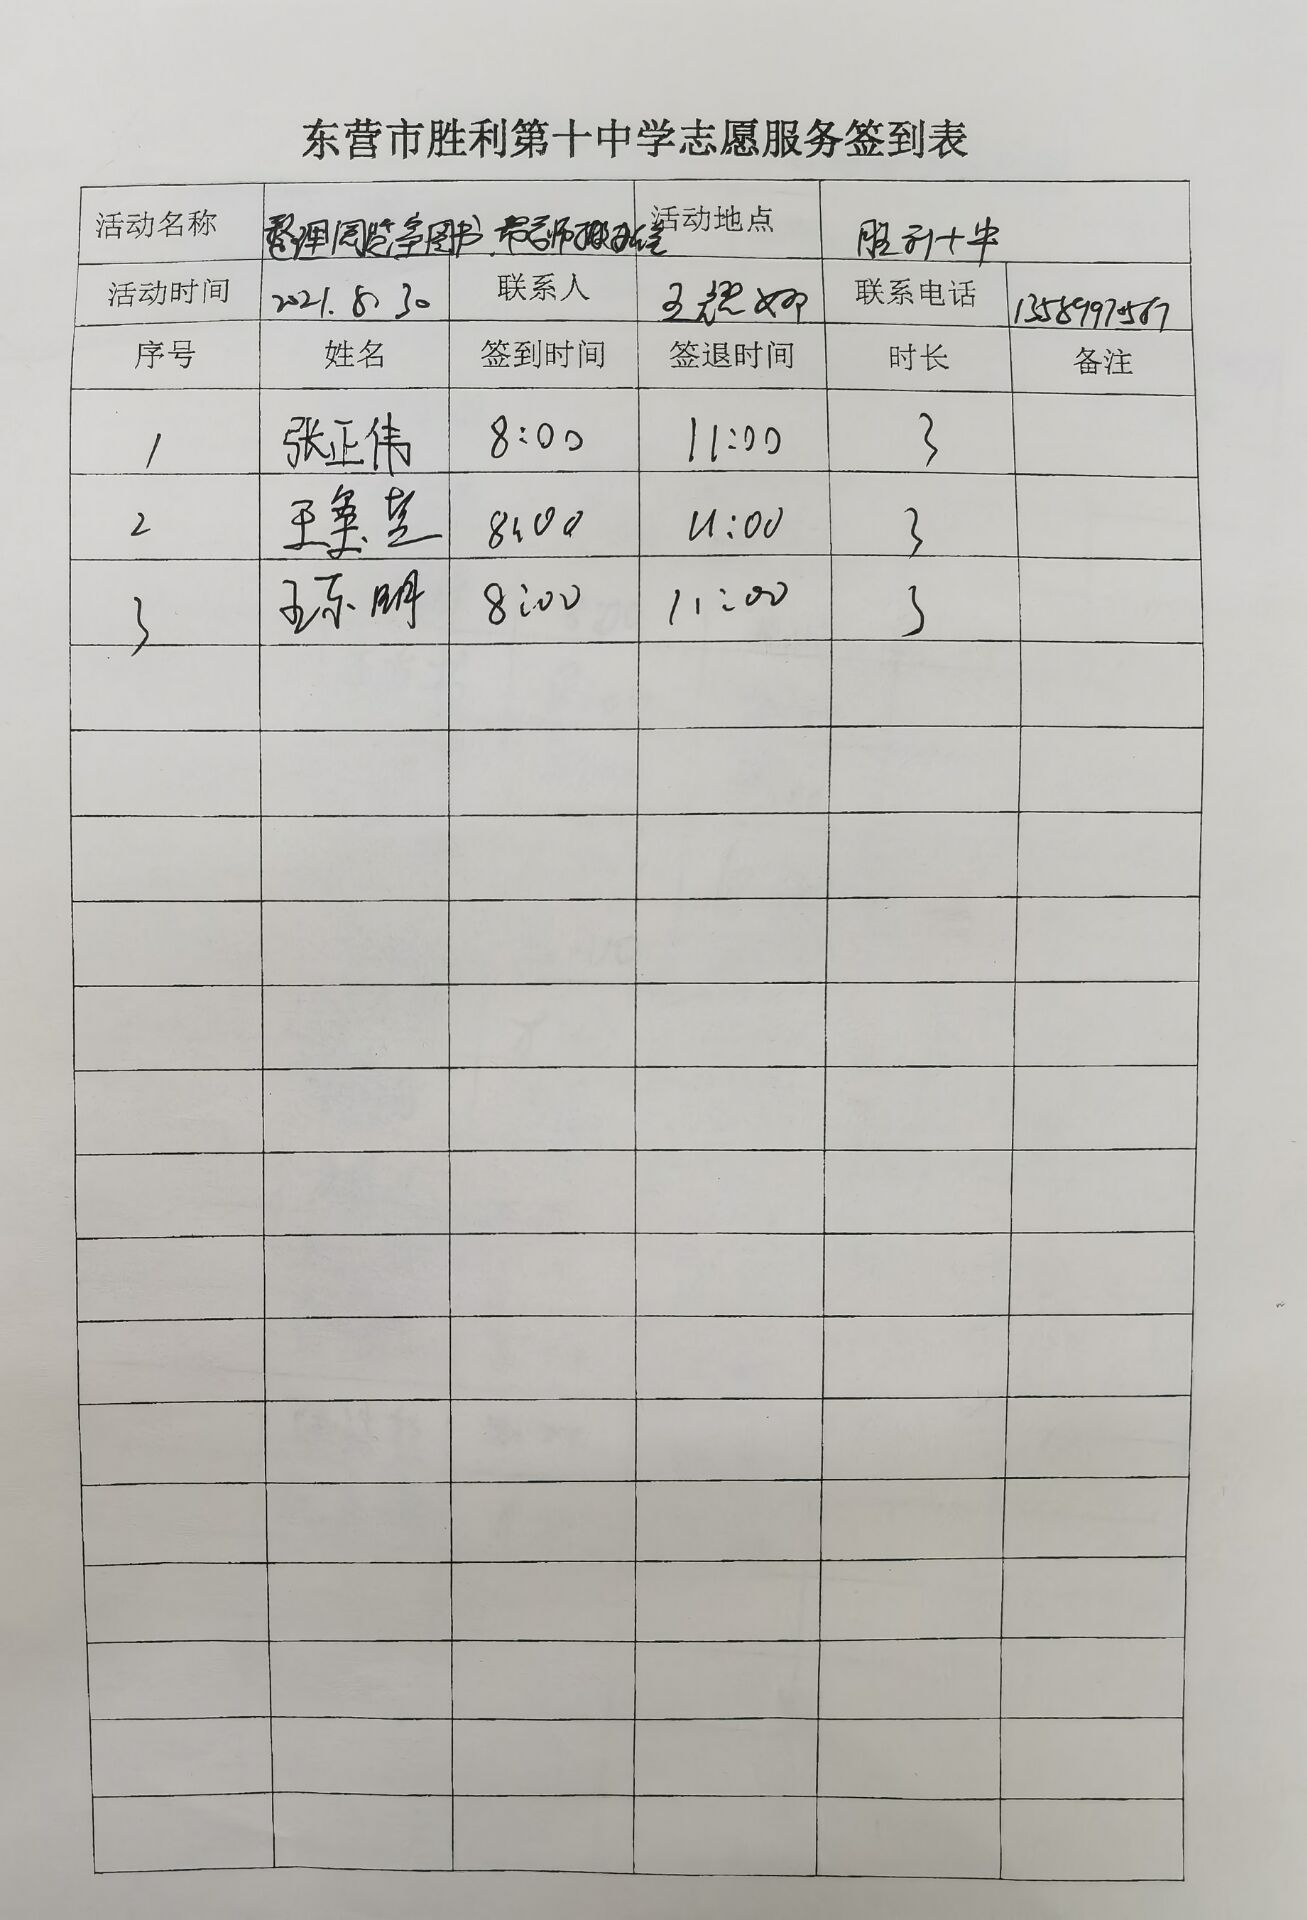 东营市胜利第十中学志愿服务签到表
活动名称 整理阅览室图书、帮老师搬办公室 活动地点 胜利十中
活动时间 2021.8.30 联系人 王 娜 联系电话 13589970567
序号 姓名 签到时间 签退时间 时长 备注
1 张正伟 8:00 11:00 3
2 王 8:00 11:00 3
3 王东明 8:00 11:00 3